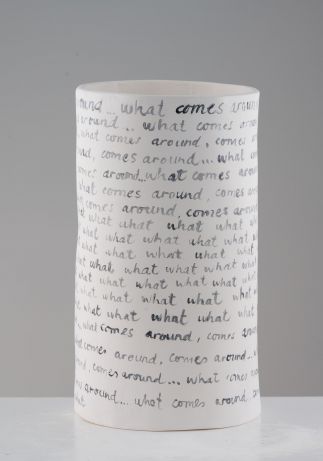 around... what comes around
around... what comes around
what comes around, comes
around, comes around... what comes
comes around... what comes around
what comes around, comes around
comes around, comes around
what what what what what
what what what what what
what what what what what
what what what what what
what what what what what
what what what what what
what what what what what
what comes around, comes around
what comes around, comes around... wh
comes around... what comes
around... what comes around